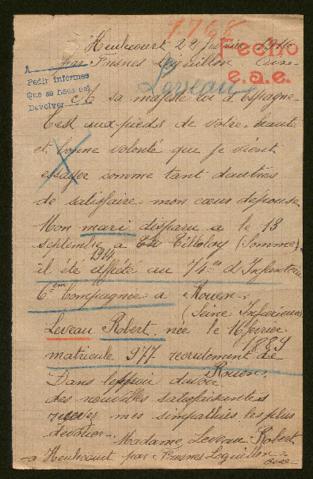 1768
Heulecourt 24 janvier 1916
Fecho
e.a.e.
par Fresnes Léguillon Oise
A
Pedir informes
Que se nous est
Devolver
Leveau
A sa majesté roi d'Espagne
C'est aux pieds de votre beauté
et bonne volonté que je viens
essayer comme tant d'autres
de satisfaire mon cœur d'épouse
Mon mari disparu a le 13
septembre a Tilloloy (Somme)
1914
il été affecté au 74me d'Infanterie
6em Compagnie a Rouen
(Seine Inférieure)
Leveau Robert, née le 16 février
1889
matricule 977 recrutement de
Rouen
Dans l'espoir d'avoir
des nouvelles satisfaisantes
mes simpathies les plus
Madame Leveau Robert
a Heulecourt par Fresnes Leguillon
Oise